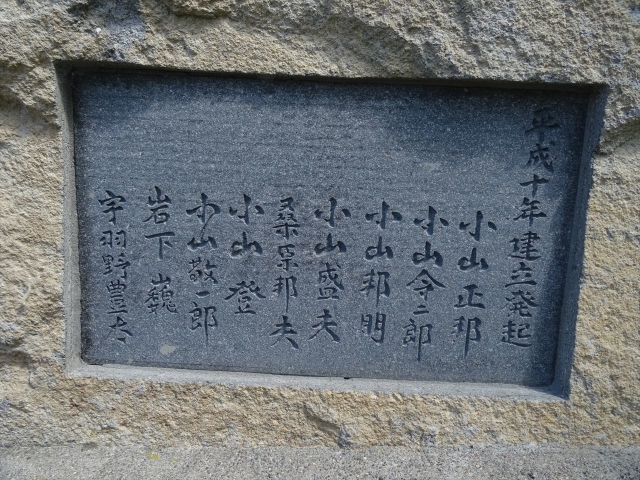 平成十年建立発起
小山正邦
小山今二郎
小山邦明
小山盛夫
桑原邦夫
小山登
小山敬一郎
岩下巍
宇羽野豊太